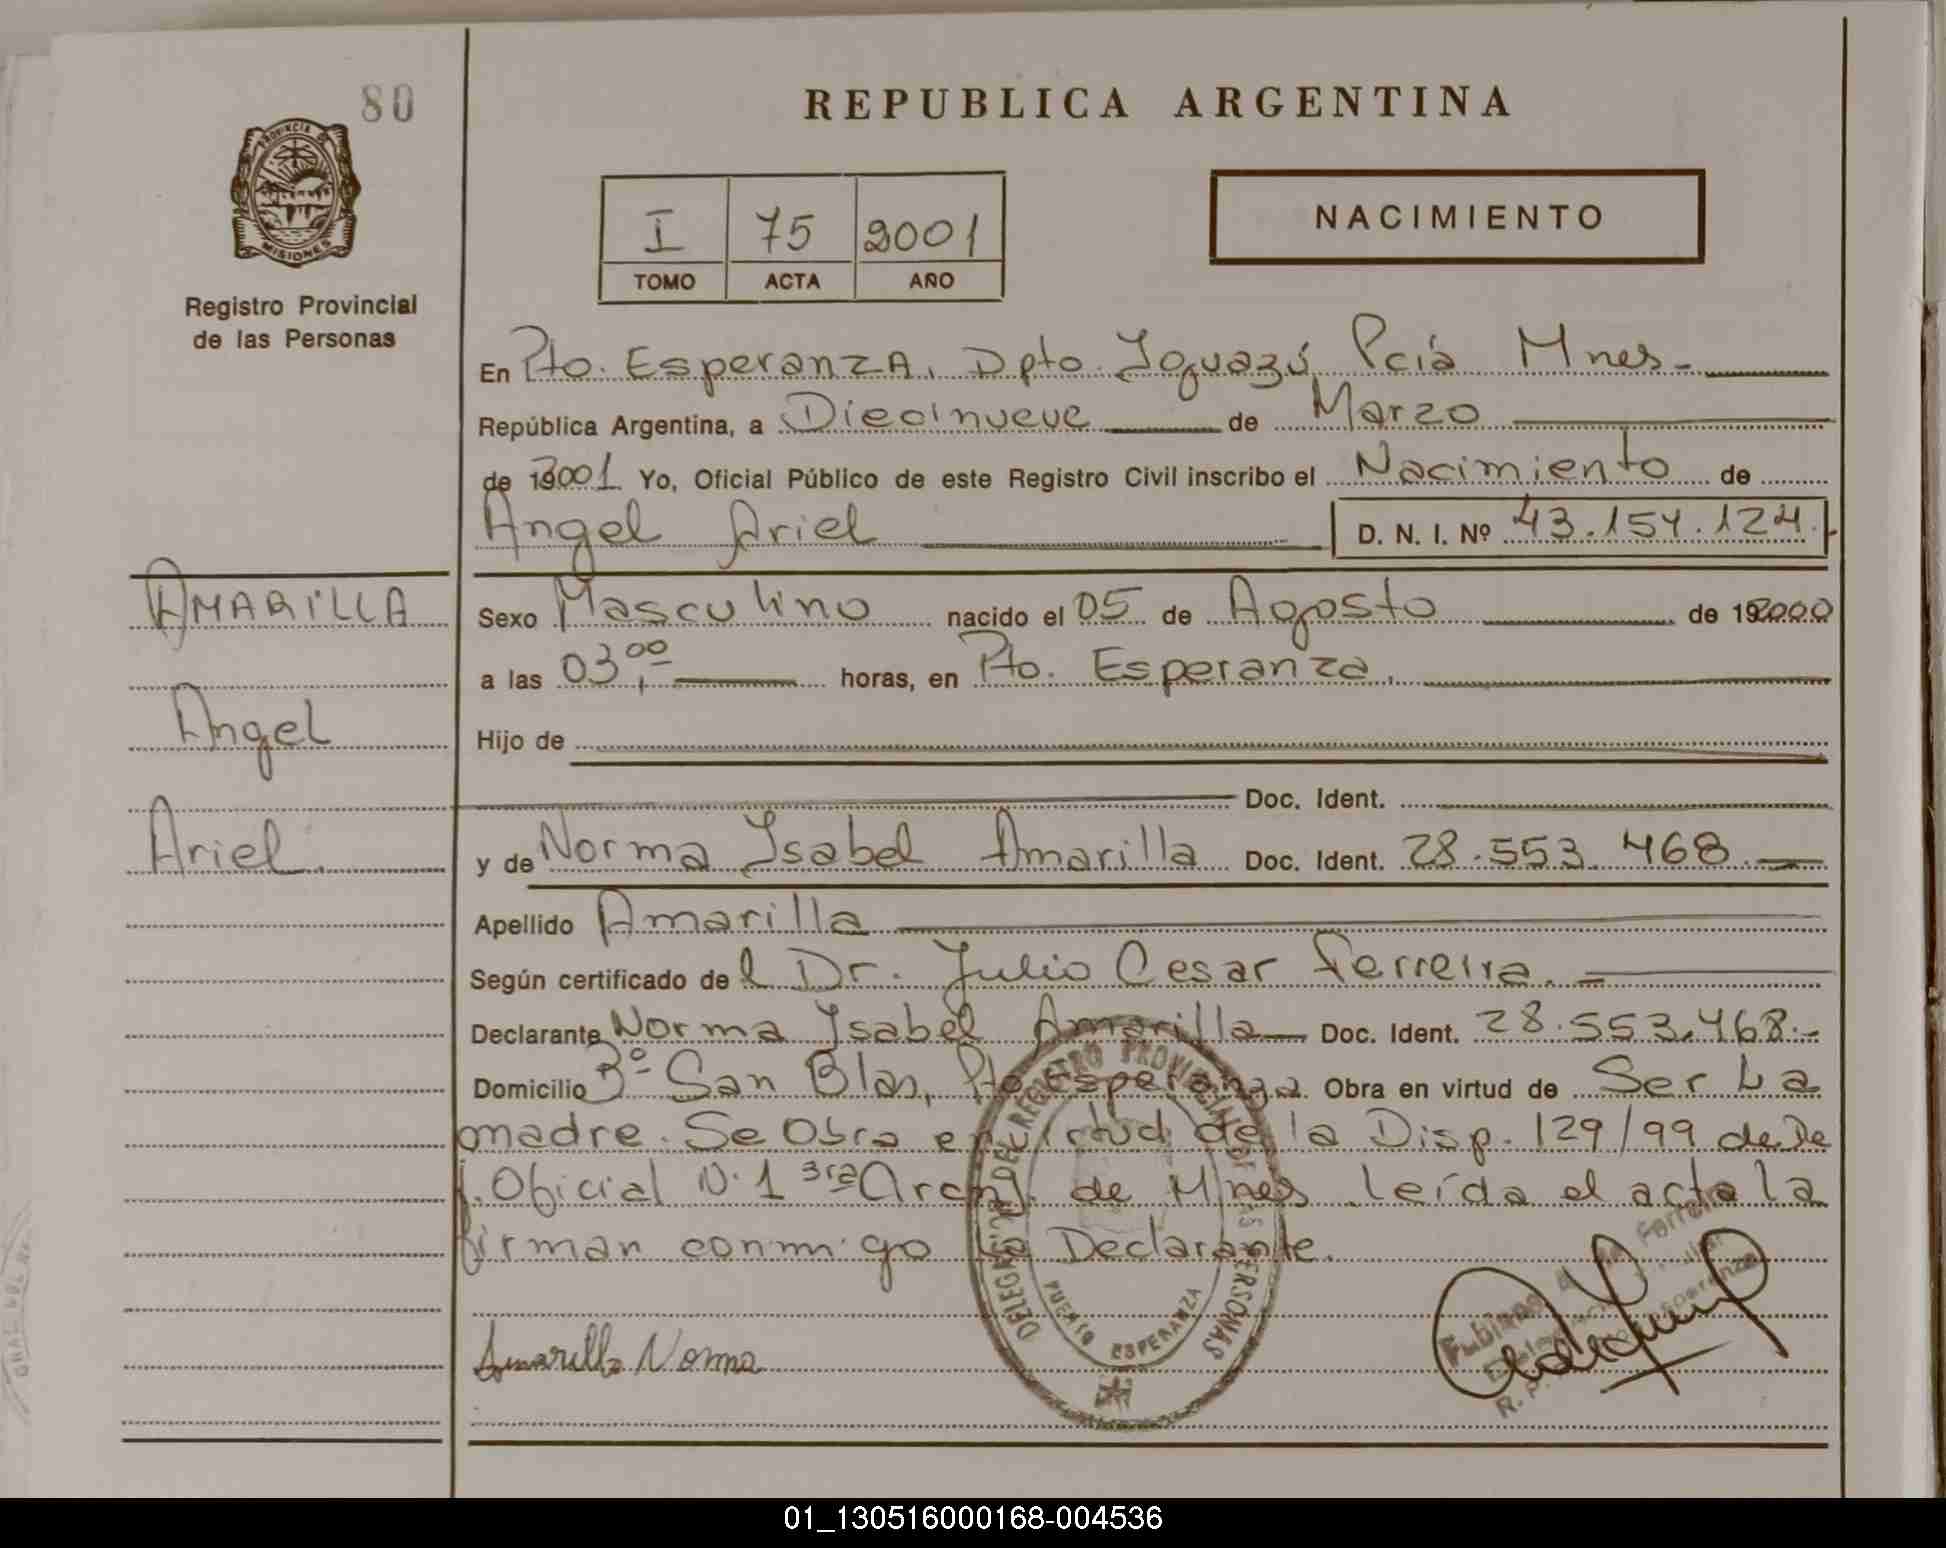 80
REPUBLICA ARGENTINA
PROVINCIA DE
MISIONES
Registro Provincial
de las Personas
I 75 2001
TOMO ACTA AÑO
NACIMIENTO
En Pto. Esperanza, Dpto. Iguazú Pcia Mnes-
República Argentina, a Diecinueve de Marzo
de 2001 Yo, Oficial Público de este Registro Civil inscribo el Nacimiento de
Angel Ariel D. N. I. Nº 43.154.124
AMARILLA
Angel
Ariel.
Sexo Masculino nacido el 05 de Agosto de 192000
a las 03,00 horas, en Pto. Esperanza.
Hijo de
Doc. Ident.
y de Norma Isabel Amarilla Doc. Ident. 28.553.468
Apellido Amarilla
Según certificado de l Dr. Julio Cesar Ferreira.
Declarante Norma Isabel Amarilla Doc. Ident. 28.553.468.-
Domicilio Bº San Blas, Pto Esperanza Obra en virtud de Ser La
madre. Se Obra en virtud de la Disp. 129/99 de De
f. Oficial N. 1 3ra de Mnes leída el acta la
firman conmigo la Declarante.
DELEGACION DEL REGISTRO PROVINCIAL DE LAS PERSONAS
PUERTO ESPERANZA
Amarilla Norma
01_130516000168-004536